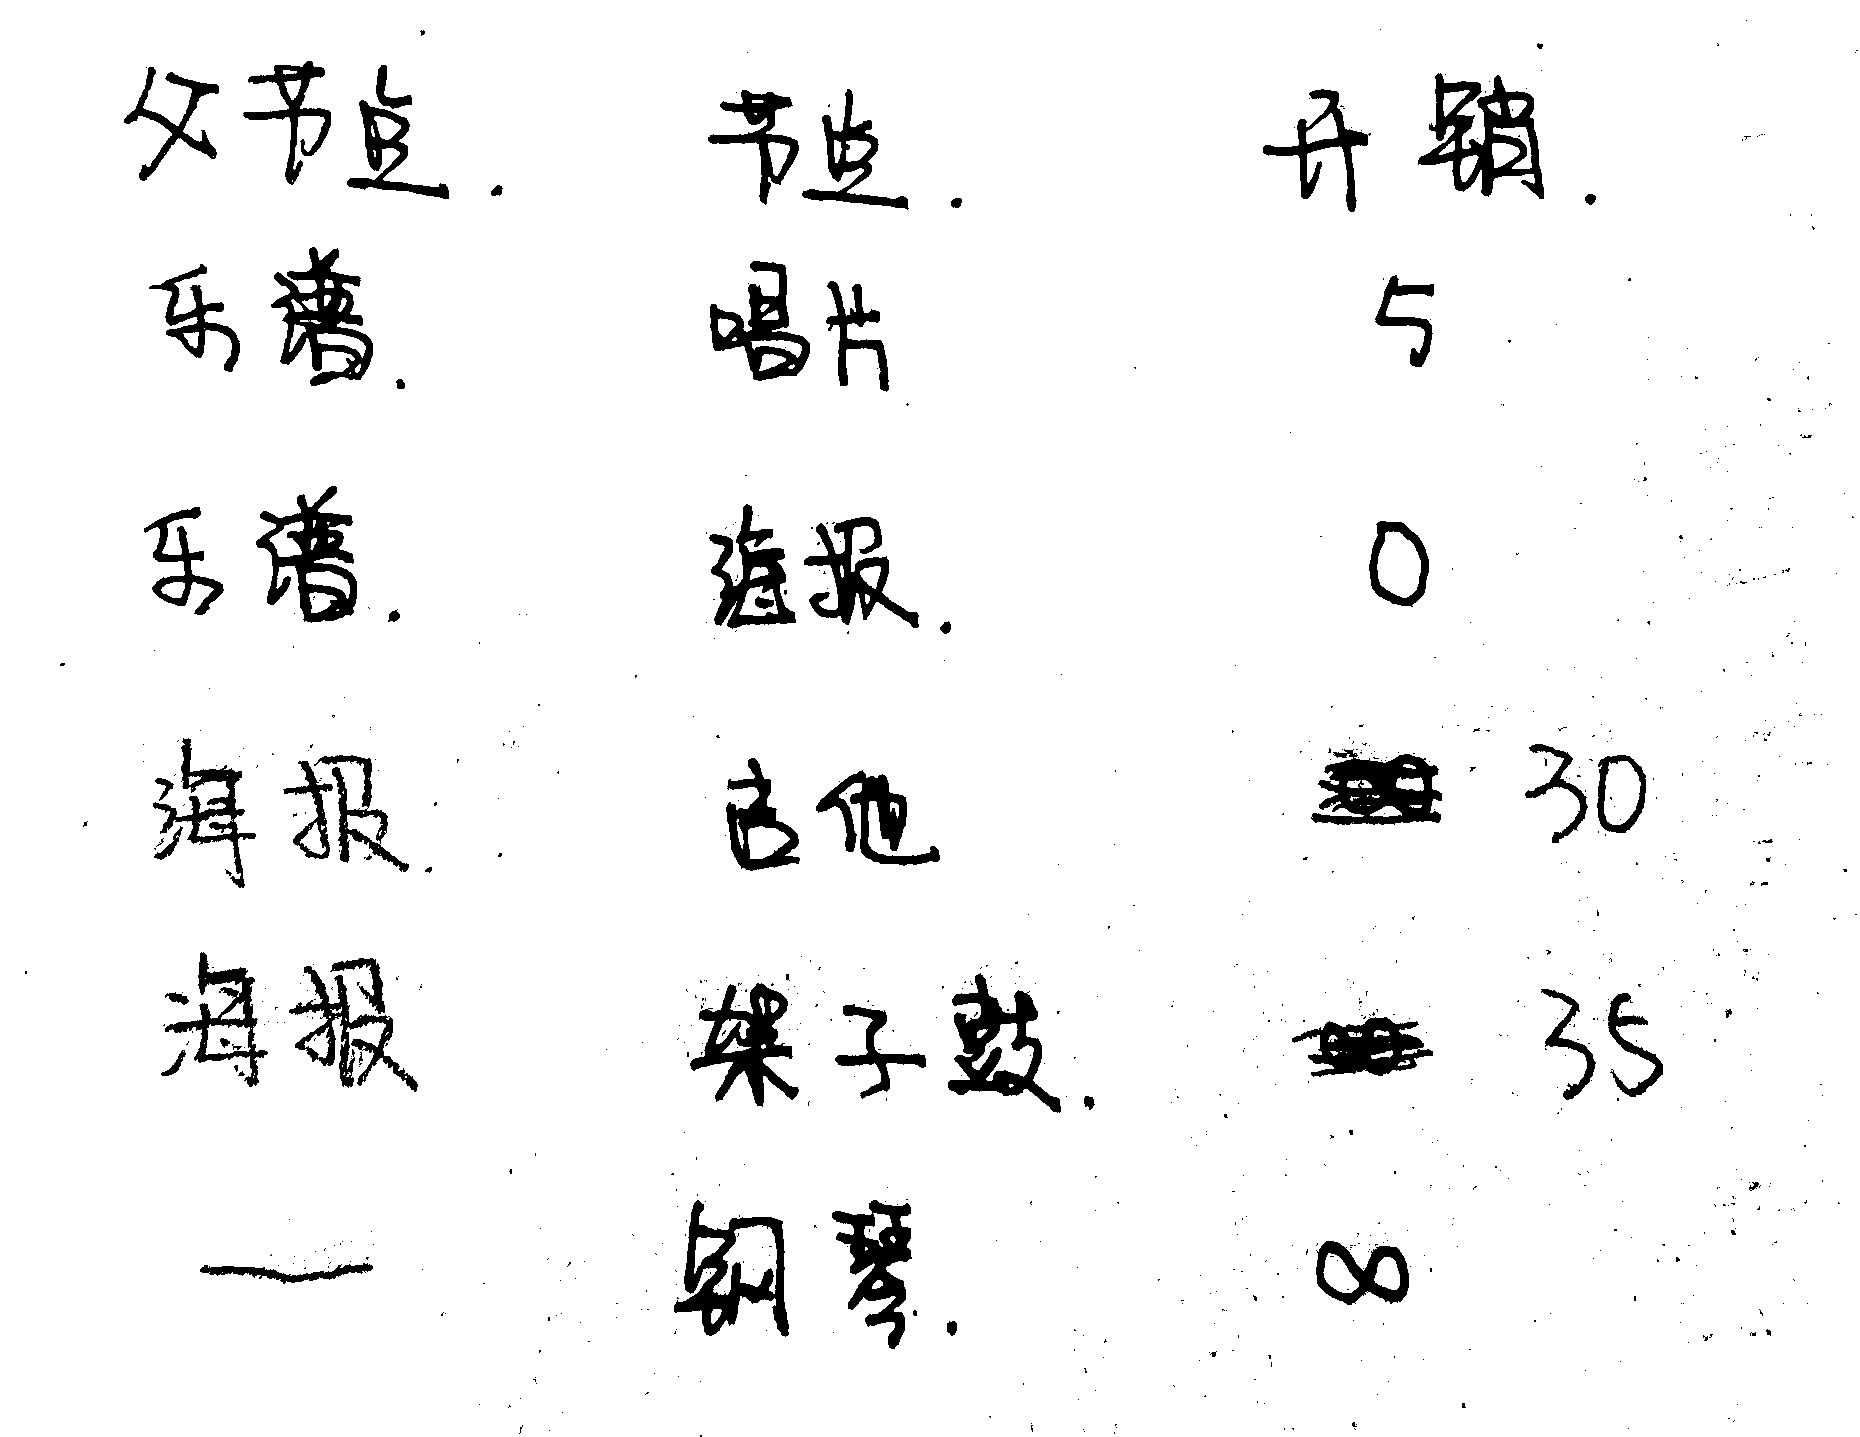 父节点. 节点. 开销.
乐谱. 唱片 5
乐谱. 海报. 0
海报. 吉他 30
海报 架子鼓. 35
— 钢琴. ∞